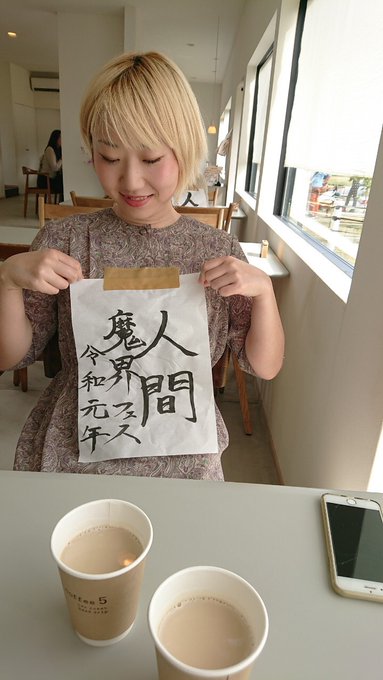 人間
魔界フェス
令和元年
coffee 5